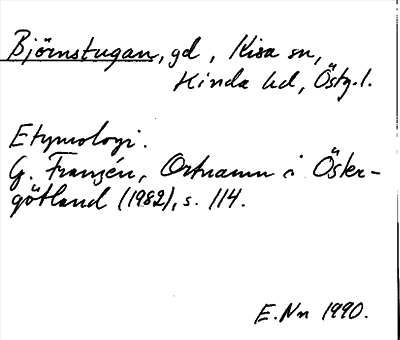 Björnstugan, gd, Kisa sn,
Kinda hd, Östg.l.
Etymologi.
G. Franzén, Ortnamn i Öster-
götland (1982), s. 114.
E.Nn 1990.